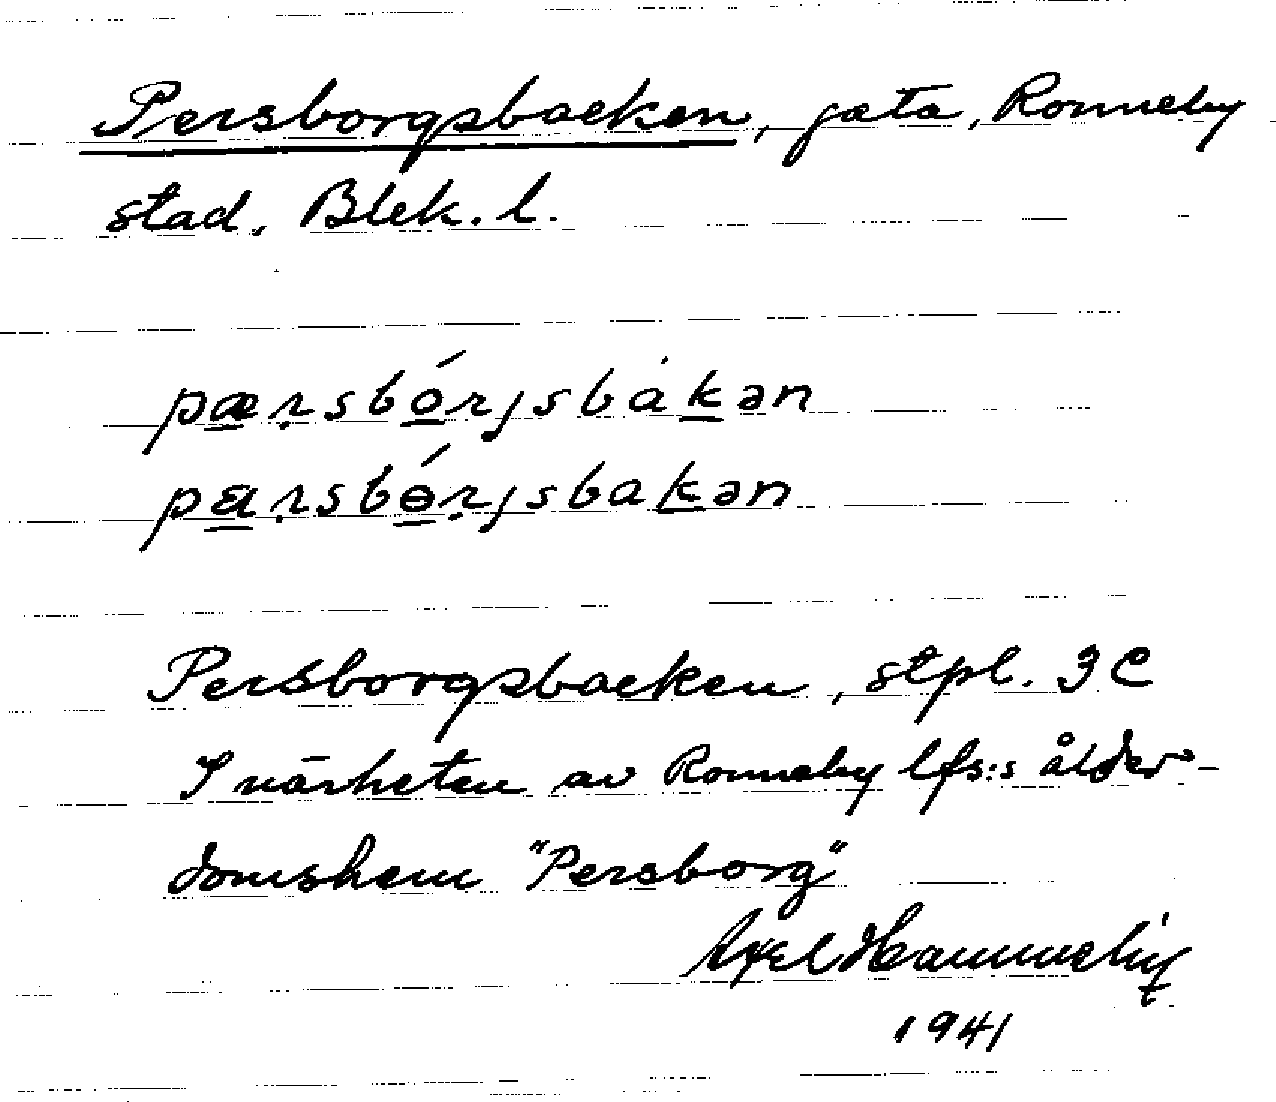 Persborgsbacken, gata, Ronneby
stad, Blek. l.
pærsbórjsbȧkən
pærsbérjsbakən
Persborgsbacken, stpl. 3 C
I närheten av Ronneby lfs:s ålder-
domshem "Persborg"
Axel
1941